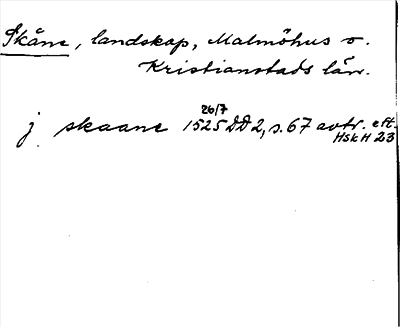 Skåne, landskap, Malmöhus o.
Kristianstads län.
26/7
j skaane 1525 DD2, s. 67 avtr. eft.
HSkH 23